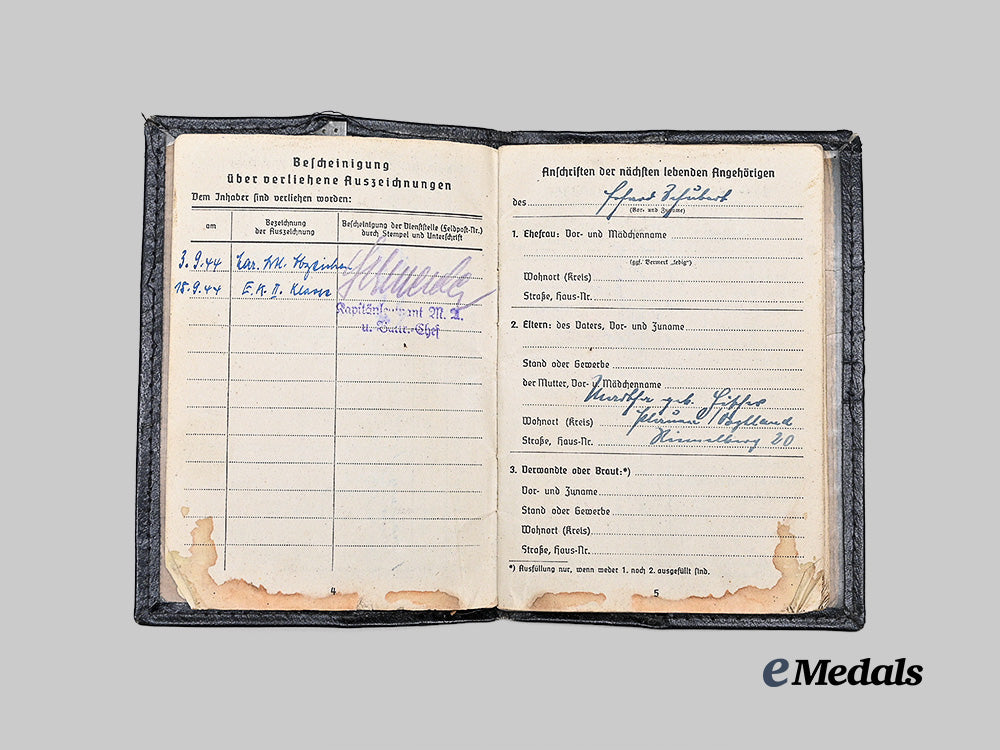 Bescheinigung
über verliehene Auszeichnungen
Dem Inhaber sind verliehen worden:
am
Bezeichnung
der Auszeichnung
Bescheinigung der Dienststelle (Feldpost-Nr.)
durch Stempel und Unterschrift
3.9.44
18.9.44 E.K. II. Klasse
Kapitänleutnant M. A.
u. Battr.-Chef
4
Anschriften der nächsten lebenden Angehörigen
des Schubert
(Vor- und Zuname)
1. Ehefrau: Vor- und Mädchenname
(ggf. Vermerk „ledig")
Wohnort (Kreis)
Straße, Haus-Nr.
2. Eltern: des Vaters, Vor- und Zuname
Stand oder Gewerbe
der Mutter, Vor- u. Mädchenname
geb.
Wohnort (Kreis) Plauen / Vogtland
Straße, Haus-Nr. 20
3. Verwandte oder Braut:*)
Vor- und Zuname
Stand oder Gewerbe
Wohnort (Kreis)
Straße, Haus-Nr.
*) Ausfüllung nur, wenn weder 1. noch 2. ausgefüllt sind.
5
eMedals